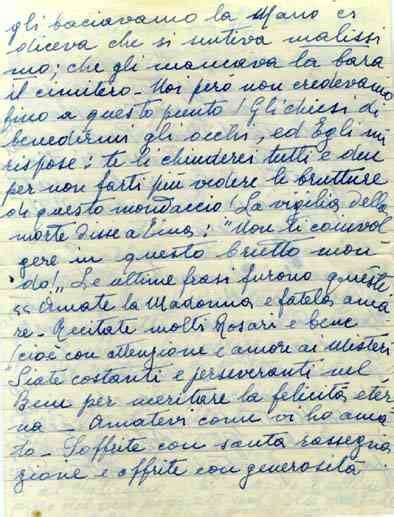 gli baciavamo la Mano ci
diceva che si sentiva malissi
mo; che gli mancava la bara
il cimitero - Noi però non credevamo
fino a questo punto! Gli chiesi di
benedirmi gli occhi, ed Egli mi
rispose: te li chiuderei tutti e due
per non farti più vedere le brutture
di questo mondaccio! La vigilia della
morte disse a Lina: "Non ti coinvol
gere in questo brutto mon
do!,, Le ultime frasi furono queste
"Amate la Madonna e fatela ama
re - Recitate molti Rosari e bene
(cioè con attenzione e amore ai Misteri
"Siate costanti e perseveranti nel
Bene per meritare la felicità eter
na - Amatevi come vi ho ama
to - Soffrite con santa rassegna
zione e offrite con generosità